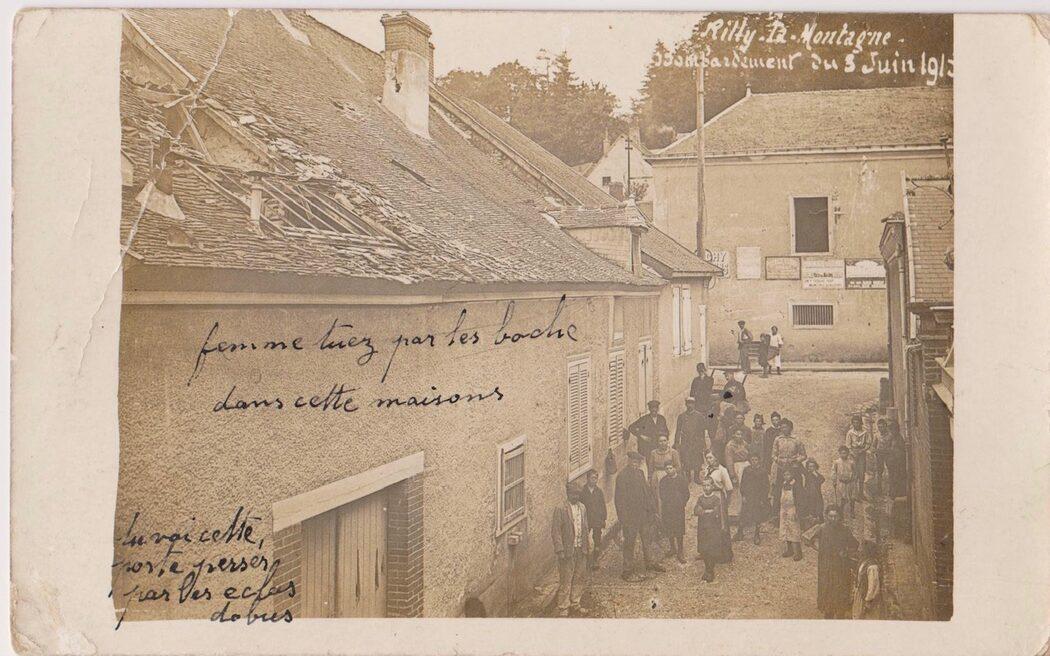 Rilly-la-Montagne-
Bombardement du 3 Juin 191
femme tuez par les boche
dans cette maisons
tu voi cette,
porte perser
par les eclas
dobus